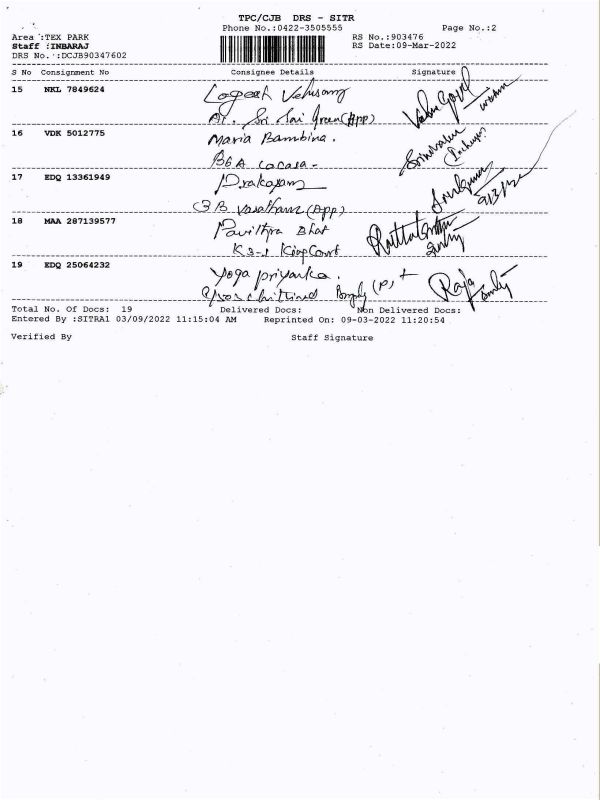 TPC/CJB DRS - SITR
Phone No.:0422-3505555 Page No.:2
Area :TEX PARK RS No.:903476
Staff :INBARAJ RS Date:09-Mar-2022
DRS No. :DCJB90347602
S No Consignment No Consignee Details Signature
15 NKL 7849624 Logesh
Sri Sai Green (App)
16 VDK 5012775 Maria Bambina.
B6A
17 EDQ 13361949 Prakasam
C3B Vasatham (App)
9/3/22
18 MAA 287139577 Pavithra Bhat
KS-1 King Court
19 EDQ 25064232 Yoga priyanka.
Raja
Total No. Of Docs: 19 Delivered Docs: Non Delivered Docs:
Entered By :SITRA1 03/09/2022 11:15:04 AM Reprinted On: 09-03-2022 11:20:54
Verified By Staff Signature